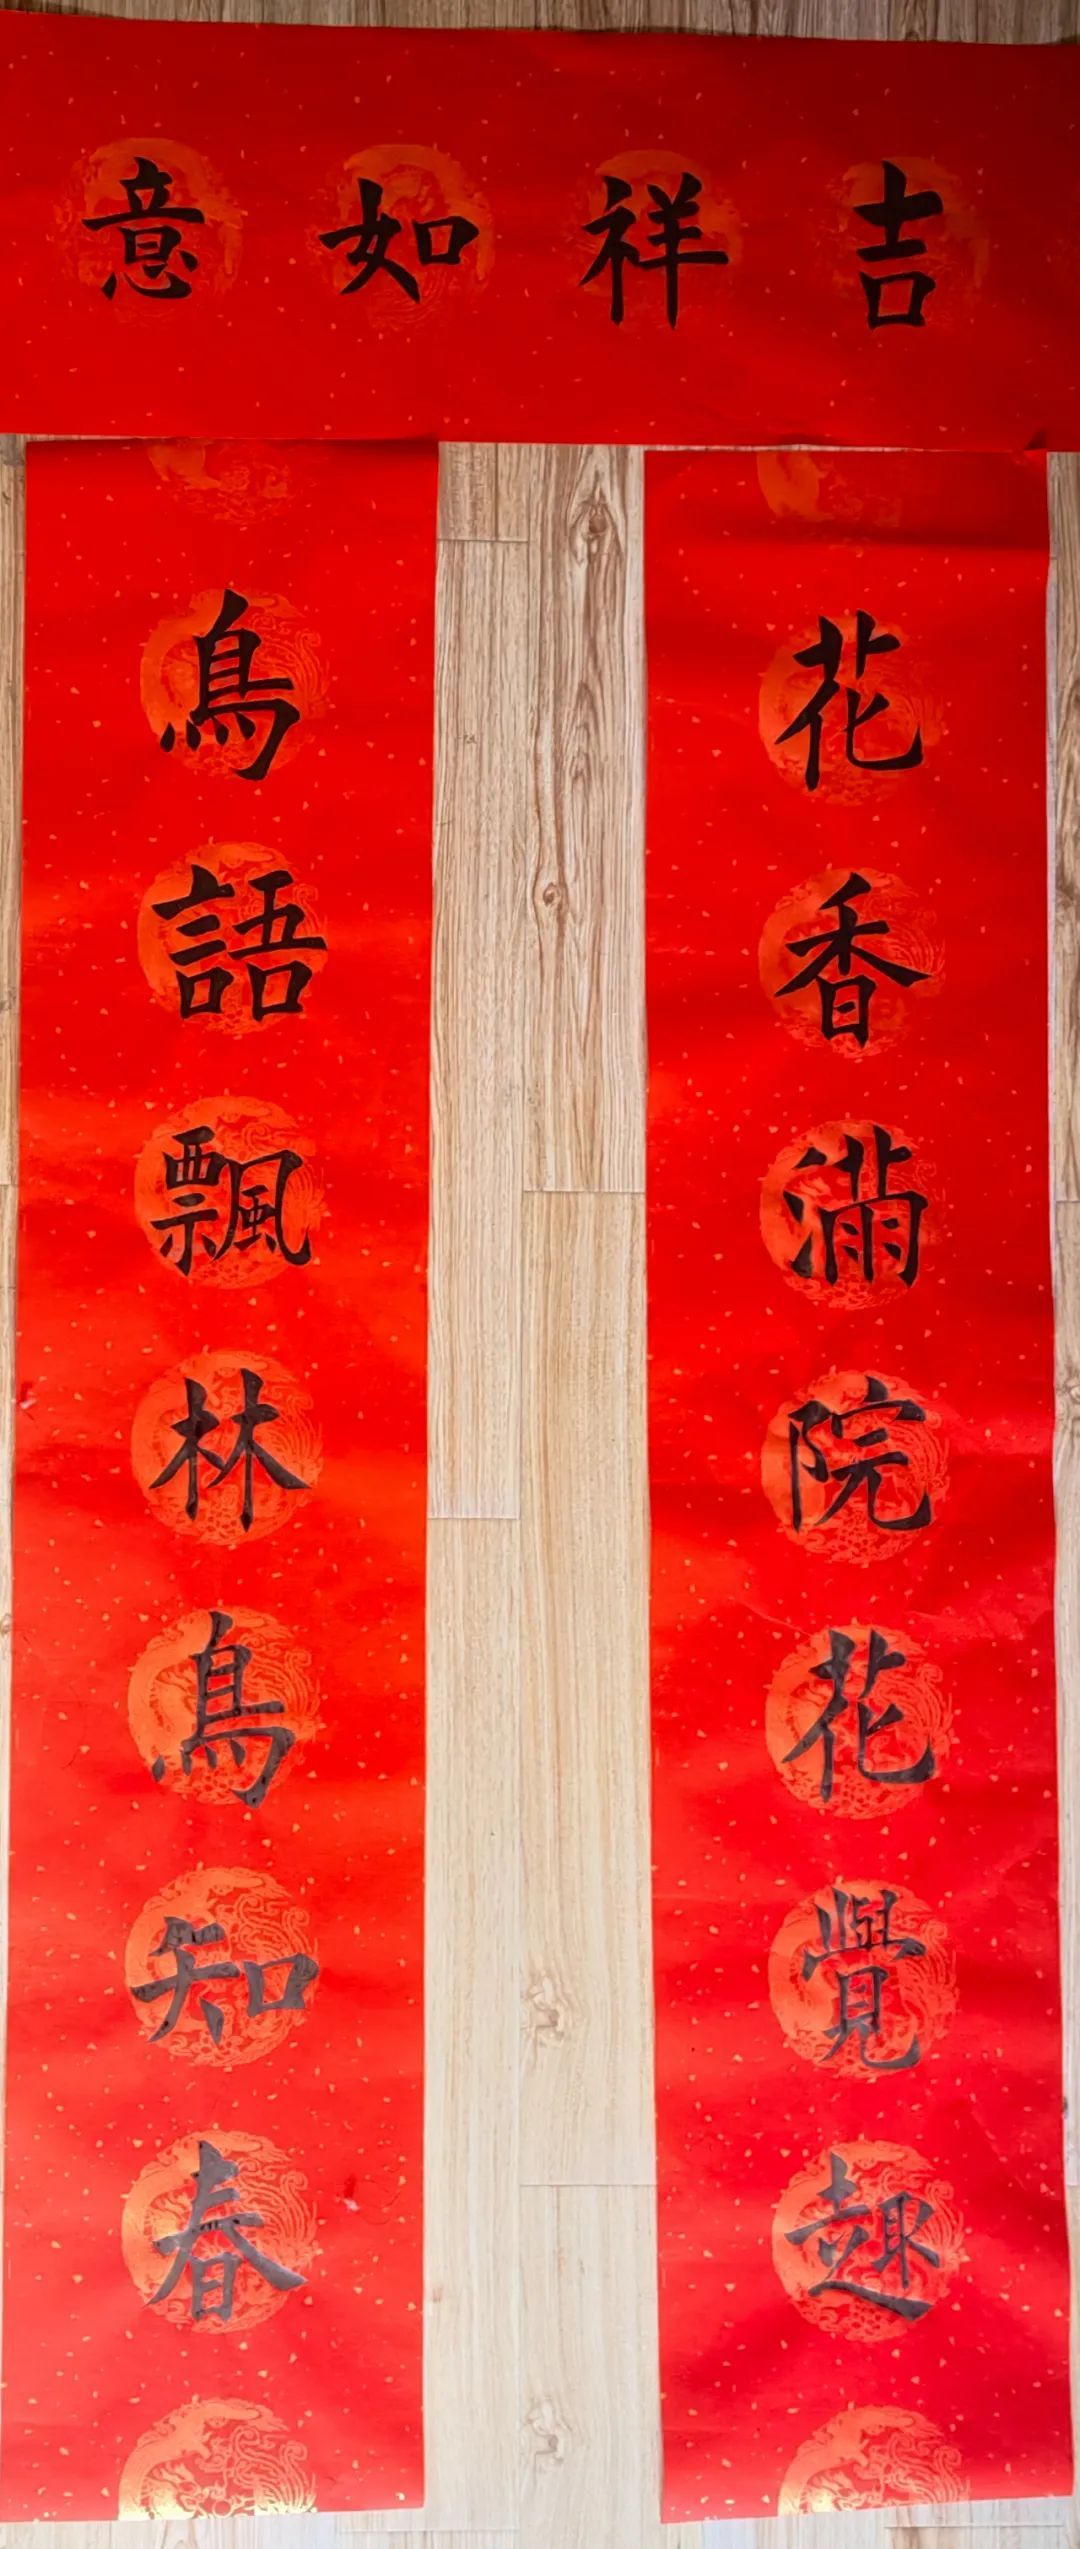 吉祥如意
花香滿院花覺趣
鳥語飄林鳥知春